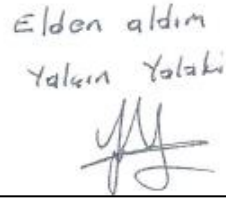 Elden aldım
Yalçın Yalaki